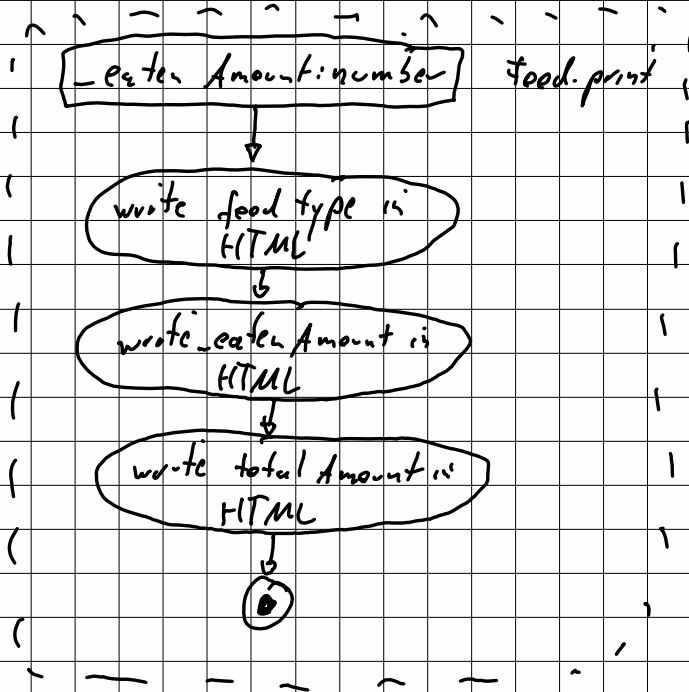 _eaten Amount:number
Food.print
write food type in
HTML
write _eaten Amount in
HTML
write total Amount in
HTML